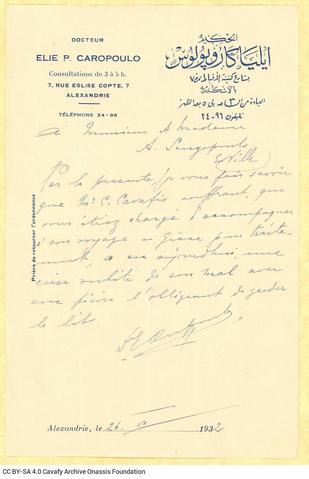 DOCTEUR
ELIE P. CAROPOULO
Consultations de 3 à 5 h.
7, RUE EGLISE COPTE, 7
ALEXANDRIE
TÉLÉPHONE 24-96
الحكيم
ايليا كاروپولوس
بشارع كنيسة الأقباط نمرة ٧
بالاسكندرية
العيادة من ٣ الى ٥ بعد الظهر
تليفون ٩٦-٢٤
Prière de retourner l'ordonnance
A Monsieur A Madame
A. Sengopoulo
(Ville)
Par la présente, je vous fais savoir
que Mr C. Cavafis souffrant, que
vous étiez chargé d'accompagner
en voyage en Grèce pour traite-
ment, a eu aujourd'hui, une
crise subite de son mal avec
fièvre l'obligeant de garder
le lit.
Alexandrie, le 26 VI 1932
CC BY-SA 4.0 Cavafy Archive Onassis Foundation